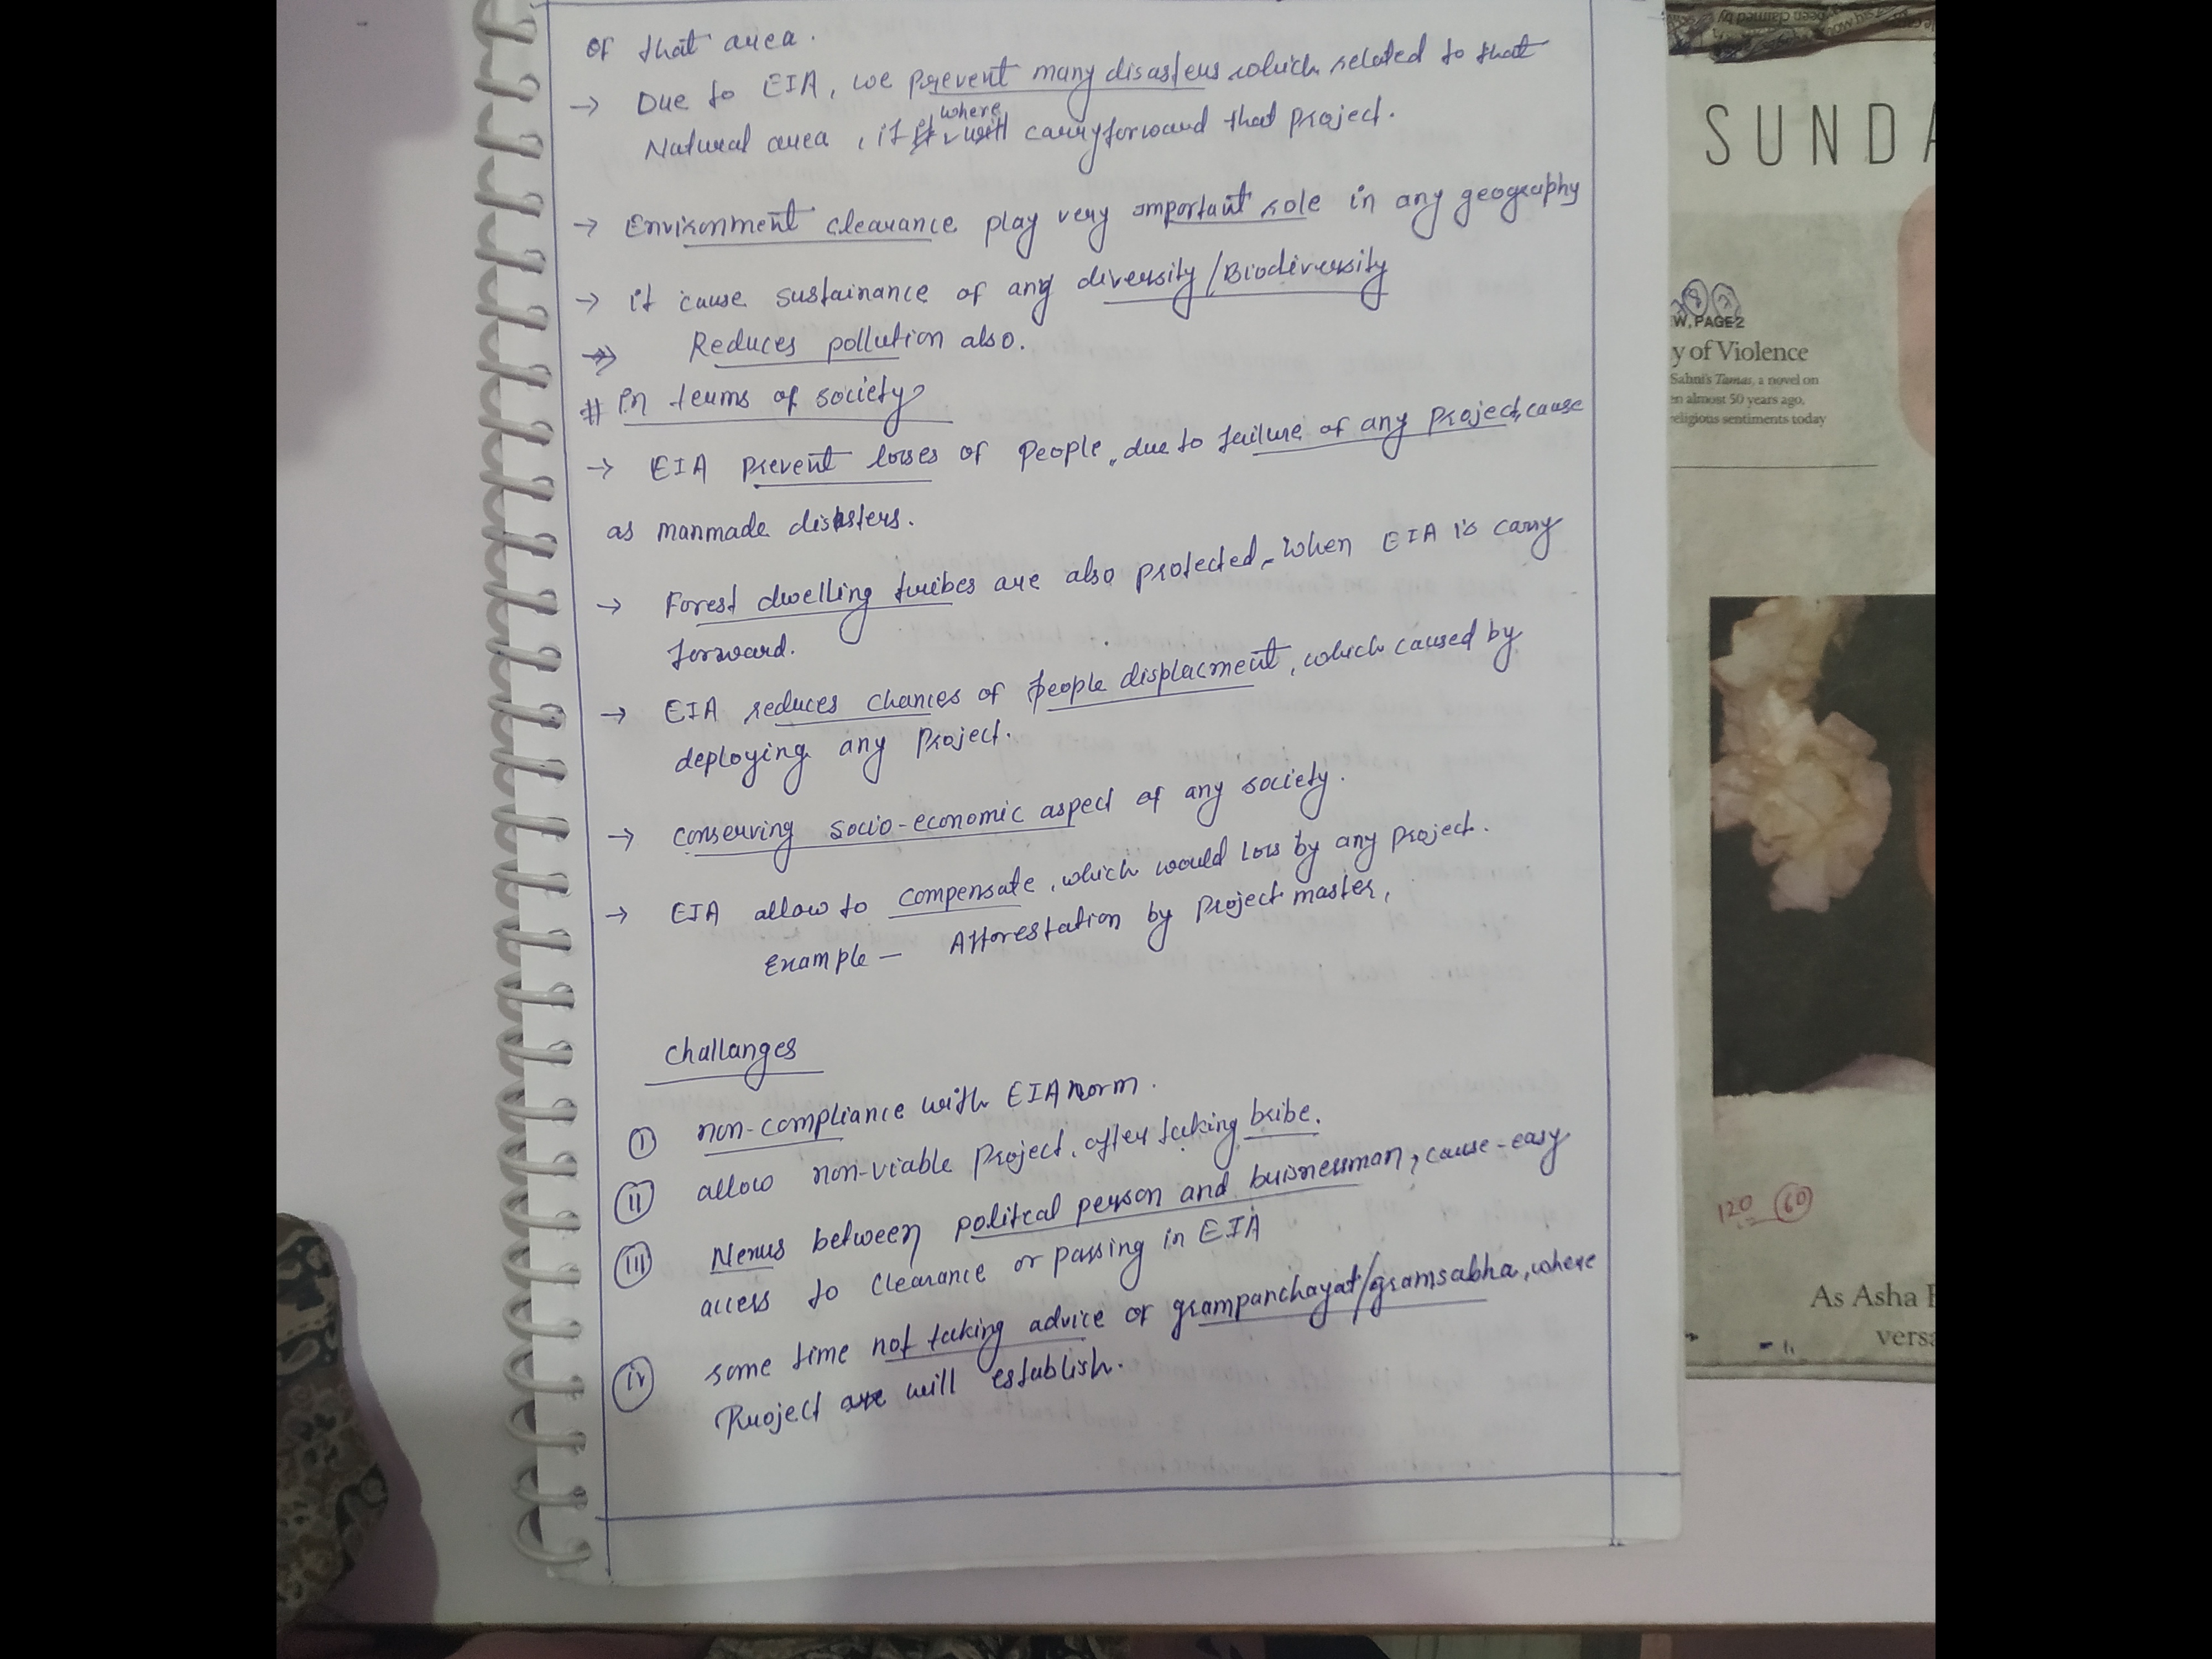 of that area.
→ Due to EIA, we prevent many disasters which related to that
where
Natural area, if it will carryforward that project.
→ Environment clearance play very important role in any geography
→ it cause sustainance of any diversity/Biodiversity
→ Reduces pollution also.
# In terms of society
→ EIA prevent losses of people, due to failure of any project, cause
as manmade disasters.
→ Forest dwelling tribes are also protected, when EIA is carry
forward.
→ EIA reduces chances of people displacment, which caused by
deploying any project.
→ conserving socio-economic aspect of any society.
→ EIA allow to compensate, which would loss by any project.
Example - Afforestation by project master,
challanges
(i) non-compliance with EIA norm.
(ii) allow non-viable project, after taking bribe.
(iii) Nexus between political person and buisnessman, cause-easy
access to clearance or passing in EIA
(iv) some time not taking advice of grampanchayat/gramsabha, where
Project are will establish.
been claimed by
SUNDA
W, PAGE 2
y of Violence
Sahni's Tamas, a novel on
en almost 50 years ago,
religious sentiments today
120 60
As Asha
versa